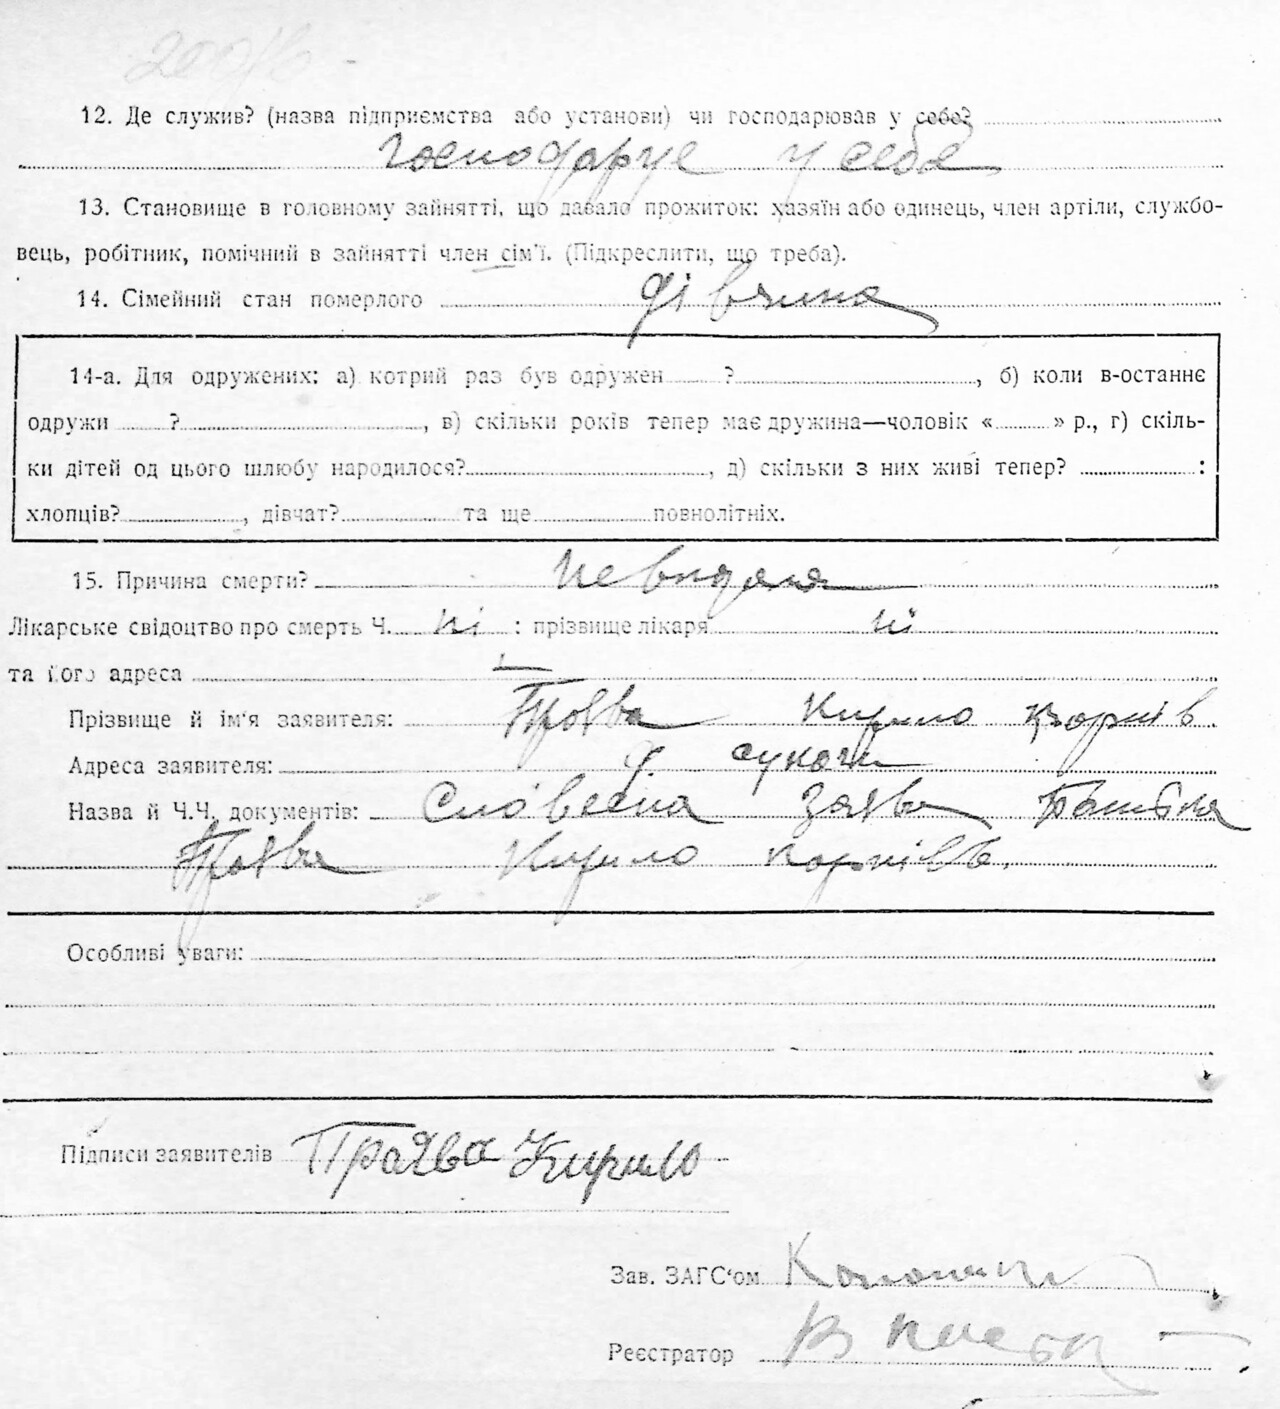 12. Де служив? (назва підприємства або установи) чи господарював у себе?
Господарує у себе
13. Становище в головному зайнятті, що давало прожиток: хазяїн або одинець, член артіли, службо-
вець, робітник, помічний в зайнятті член сім'ї. (Підкреслити, що треба).
14. Сімейний стан померлого дівчина
14-а. Для одружених: а) котрий раз був одружен ? , б) коли в-останнє
одружи ? , в) скільки років тепер має дружина—чоловік « » р., г) скіль-
ки дітей од цього шлюбу народилося? , д) скільки з них живі тепер? :
хлопців? , дівчат? та ще повнолітніх.
15. Причина смерти?
Лікарське свідоцтво про смерть Ч. ні : прізвище лікаря ні
та його адреса
Прізвище й ім'я заявителя: Проява Кирило Корнів
Адреса заявителя: с. Сукачи
Назва й Ч.Ч. документів: Словесна заява батька
Проява Кирило Корнівъ.
Особливі уваги:
Підписи заявителів Проява Кирило
Зав. ЗАГС'ом
Реєстратор